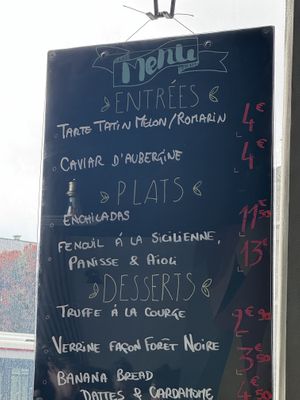 Menu
ENTRÉES
TARTE TATIN MELON/ROMARIN 4€
CAVIAR D'AUBERGINE 4€
PLATS
ENCHILADAS 11€50
FENOUIL À LA SICILIENNE, 13€
PANISSE & AIOLI
DESSERTS
TRUFFE À LA COURGE 2€90
VERRINE FAÇON FORÊT NOIRE 3€50
BANANA BREAD
DATTES & CARDAMOME 4€50